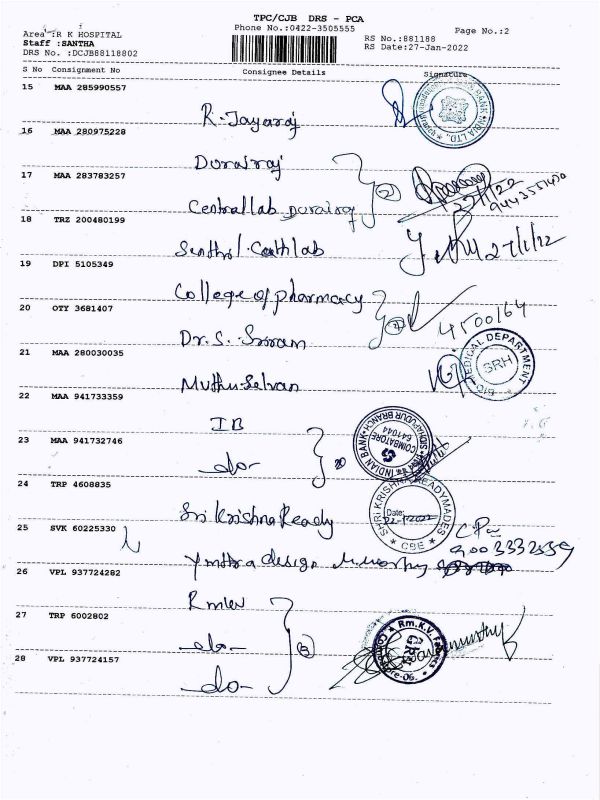 TPC/CJB DRS - PCA
Phone No.:0422-3505555
Page No.:2
Area :R K HOSPITAL
Staff :SANTHA
DRS No. :DCJB88118802
RS No.:881188
RS Date:27-Jan-2022
S No Consignment No Consignee Details Signature
15 MAA 285990557
R. Jayaraj
16 MAA 280975228
Durairaj
17 MAA 283783257
Central lab Durairaj
27/1/22
18 TRZ 200480199
Cath lab
27/1/22
19 DPI 5105349
College of pharmacy
20 OTY 3681407
4500164
Dr. S. Sriram
21 MAA 280030035
BIO MEDICAL DEPARTMENT
SRH
Muthu Selvan
22 MAA 941733359
IB
INDIAN BANK
SIDHAPUDUR BRANCH
COIMBATORE
641044
23 MAA 941732746
-do-
24 TRP 4608835
Sri Krishna Ready
SHRI KRISHNA READYMADES
Date:
CBE
25 SVK 60225330
design
26 VPL 937724282
27 TRP 6002802
-do-
Rm.K.V.
28 VPL 937724157
-do-